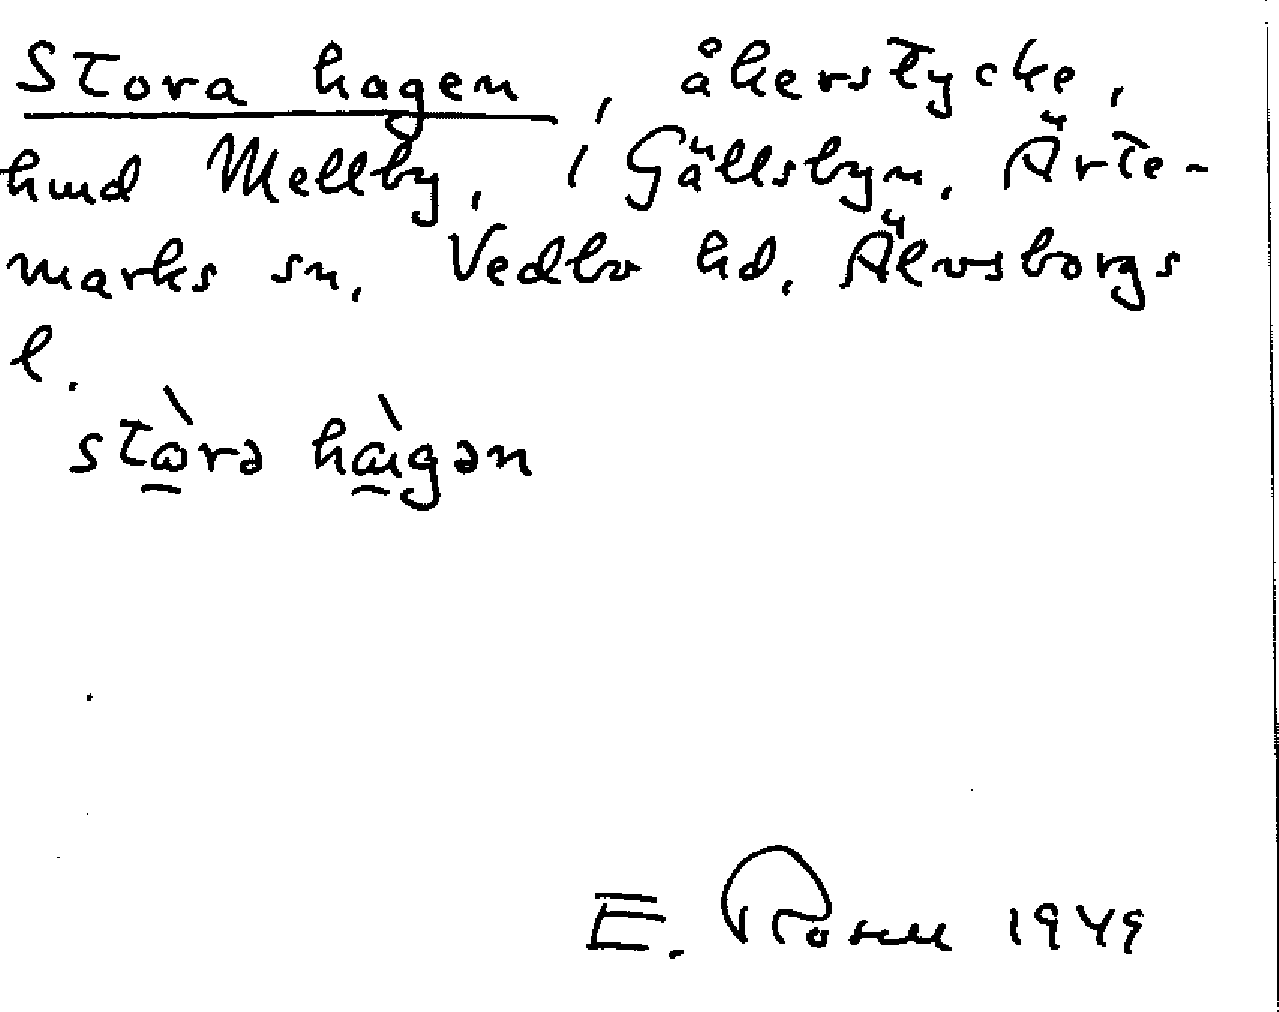 Stora hagen, åkerstycke,
hmd Mellby, i Gällsbyn, Ärte-
marks sn, Vedbo hd, Älvsborgs
l.
stɷ̀rə hɑ̀gən
E. Rosell 1949